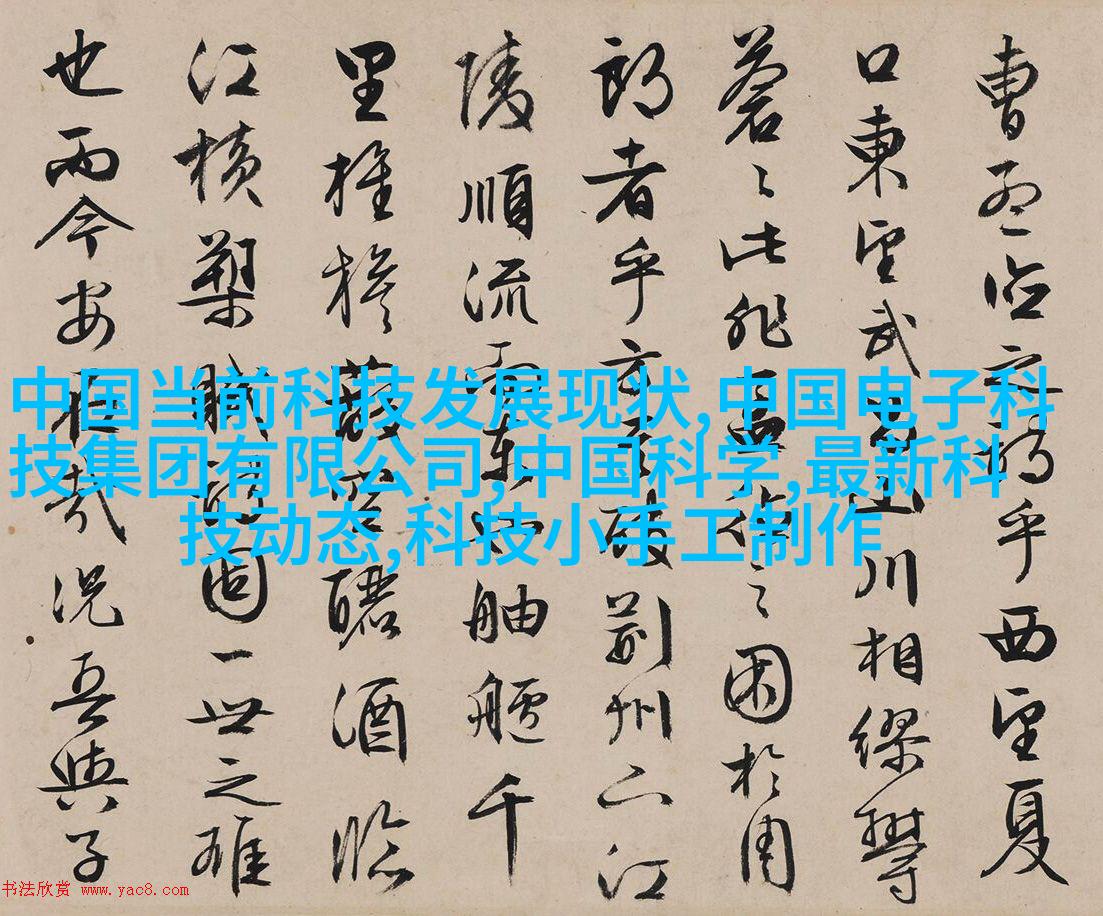 曹孟德之詩乎西望夏
口東望武昌山川相繆鬱
蒼〻此非孟德之困於周
郎者乎方其破荊州下江
陵順流而東也舳艫千
里旌旗蔽空釃酒臨
江橫槊賦詩固一世之雄
也而今安在哉況吾與子
中国当前科技发展现状,中国电子科
技集团有限公司,中国科学,最新科
技动态,科技小手工制作
书法欣赏 www.yac8.com